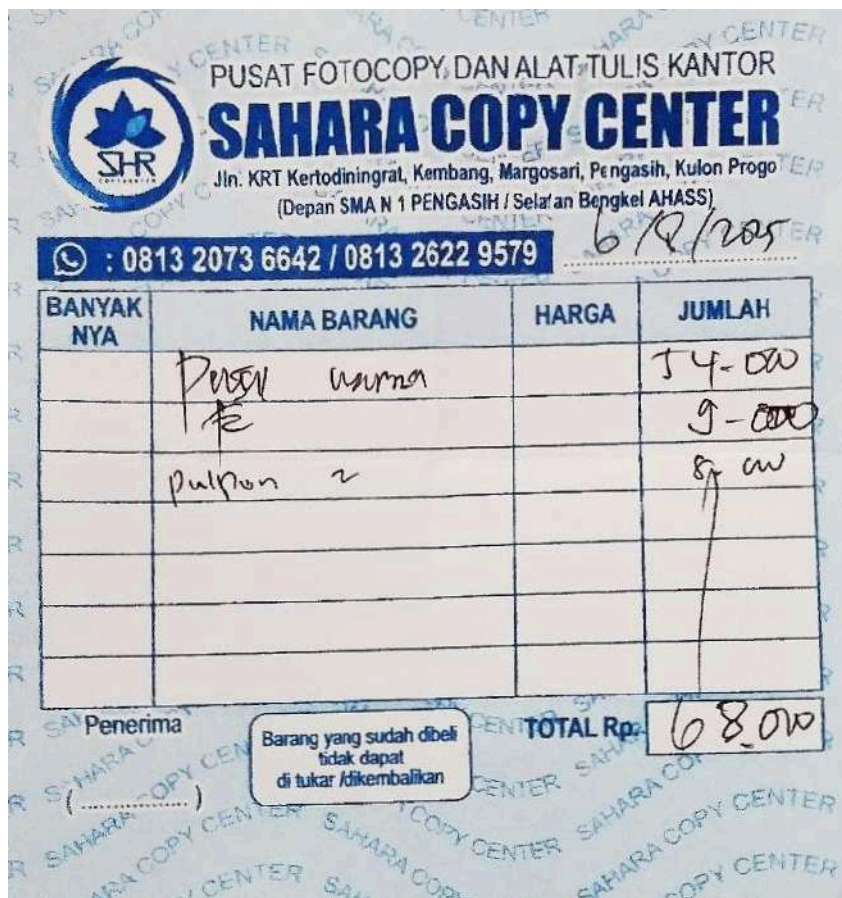 PUSAT FOTOCOPY DAN ALAT TULIS KANTOR
SAHARA COPY CENTER
SHR
Jln. KRT Kertodiningrat, Kembang, Margosari, Pengasih, Kulon Progo
(Depan SMA N 1 PENGASIH / Selatan Bengkel AHASS)
: 0813 2073 6642 / 0813 2622 9579
BANYAK NYA NAMA BARANG HARGA JUMLAH
warna
9-000
pulpen 2
Penerima
Barang yang sudah dibeli
tidak dapat
di tukar /dikembalikan
TOTAL Rp. 68.000
(..............)